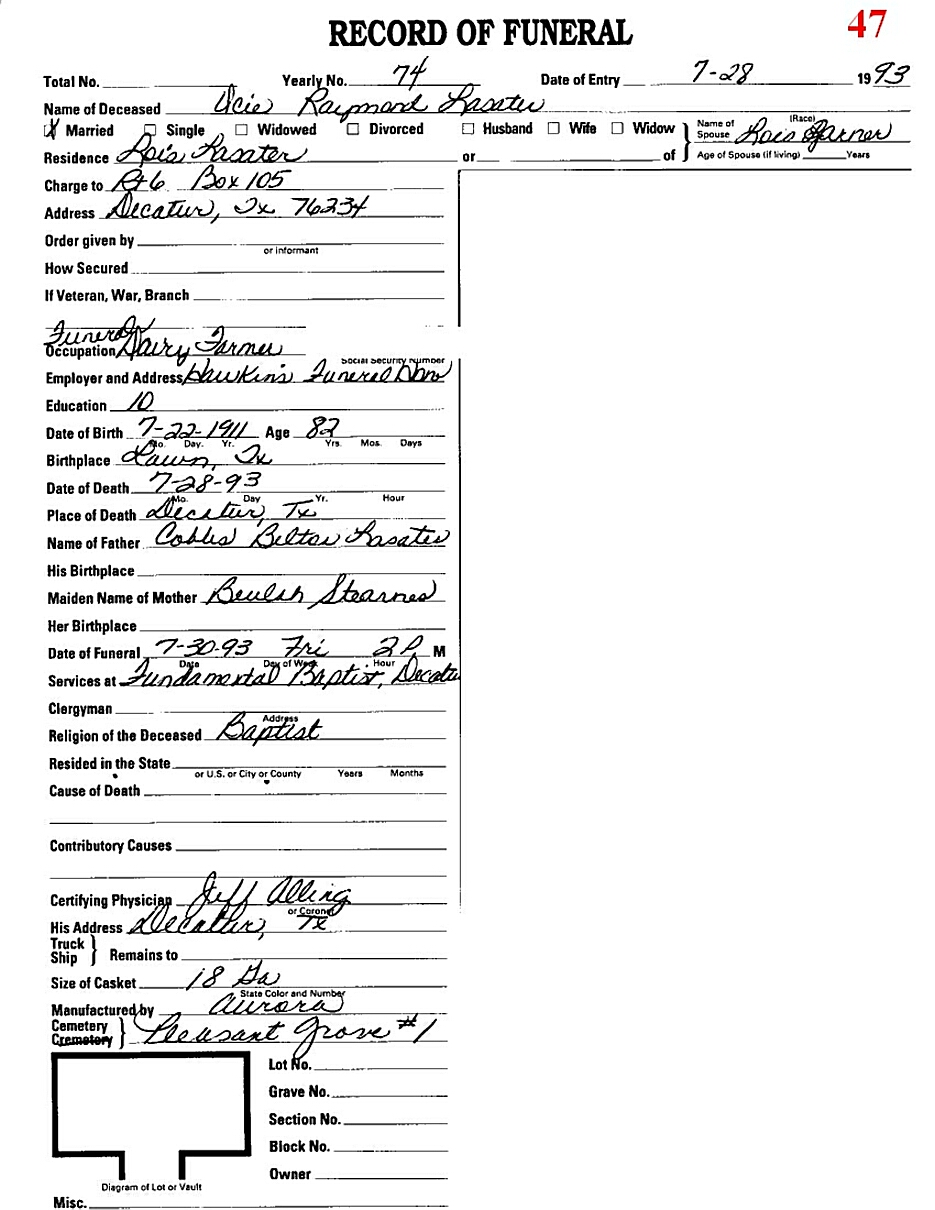 RECORD OF FUNERAL
47
Total No. Yearly No. 74 Date of Entry 7-28 1993
Name of Deceased Ocie Raymond Lasater
(Race)
X Married Single Widowed Divorced Husband Wife Widow } Name of Spouse Lois Garner
Residence Lois Lasater or of Age of Spouse (if living) Years
Charge to Rt 6 Box 105
Address Decatur, Tx 76234
Order given by
or informant
How Secured
If Veteran, War, Branch
Funeral
Occupation Dairy Farmer
Social Security Number
Employer and Address Hawkin's Funeral Hm
Education 10
Date of Birth 7-22-1911 Age 82
Mo. Day. Yr. Yrs. Mos. Days
Birthplace Lawn, Tx
Date of Death 7-28-93
Mo. Day Yr. Hour
Place of Death Decatur, Tx
Name of Father Belton Lasater
His Birthplace
Maiden Name of Mother Beulah Stearnes
Her Birthplace
Date of Funeral 7-30-93 Fri 2 P. M
Date Day of Week Hour
Services at Fundamental Baptist, Decatu
Clergyman
Address
Religion of the Deceased Baptist
Resided in the State
or U.S. or City or County Years Months
Cause of Death
Contributory Causes
Certifying Physician Jeff Alling
or Coroner
His Address Decatur, Tx
Truck
Ship } Remains to
Size of Casket 18 Ga
State Color and Number
Manufactured by Aurora
Cemetery
Crematory } Pleasant Grove #1
Lot No.
Grave No.
Section No.
Block No.
Owner
Diagram of Lot or Vault
Misc.